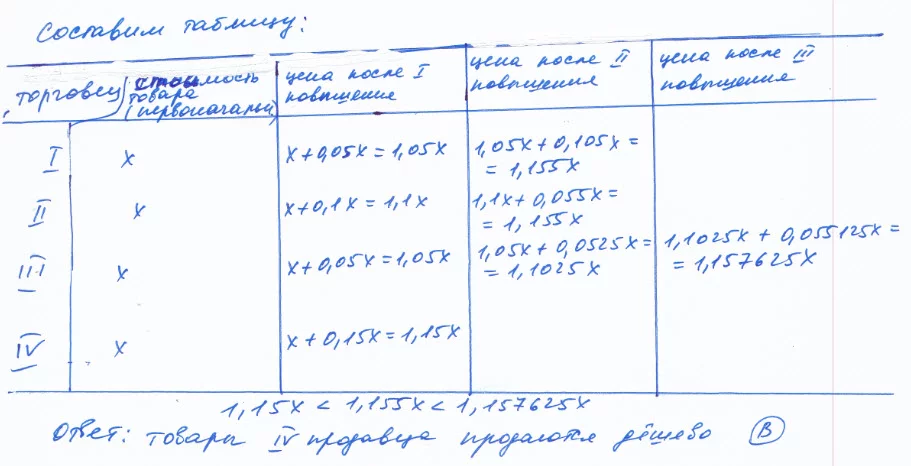 Составим таблицу:
торговец стоимость товара (первоначальн. цена после I повышения цена после II повышения цена после III повышения
I x x+0,05x=1,05x 1,05x+0,105x=
=1,155x
II x x+0,1x=1,1x 1,1x+0,055x=
=1,155x
III x x+0,05x=1,05x 1,05x+0,0525x= 1,1025x+0,055125x=
=1,1025x =1,157625x
IV x x+0,15x=1,15x
1,15x < 1,155x < 1,157625x
Ответ: товары IV продавца продаются дёшево В